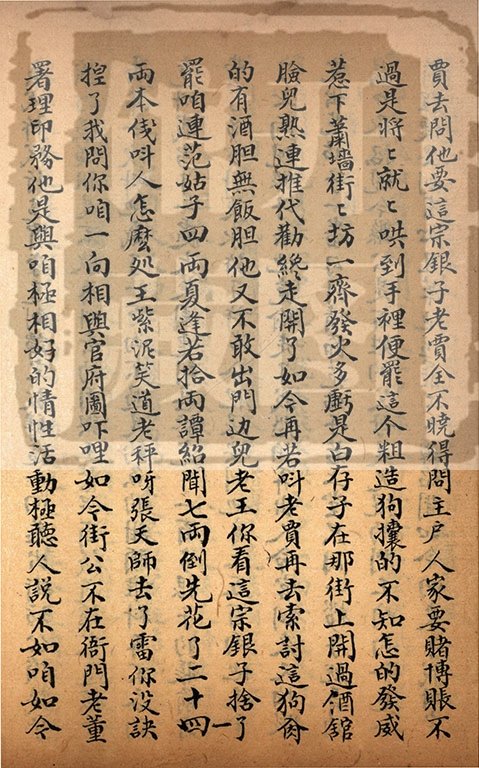 賈去問他要這宗銀子老賈全不曉得問主户人家要賭博賬不
過是將〻就〻哄到手裡便罷這个粗造狗攮的不知怎的發威
惹下蕭墻街〻坊一齊發火多虧臭白存子在那街上開過酒舘
臉兒熟連推代勸纔走開了如今再若呌老賈再去索討這狗肏
的有酒胆無飯胆他又不敢出門边兒老王你看這宗銀子捨了
罷咱連范姑子四兩夏逢若拾兩譚紹聞七兩倒先花了二十四一
兩本伐呌人怎麽処王紫泥笑道老秤呀張天師去了雷你没訣
控了我問你咱一向相與官府圖吓哩如今街公不在衙門老董
署理印務他是與咱極相好的情性活動極聽人説不如咱如今